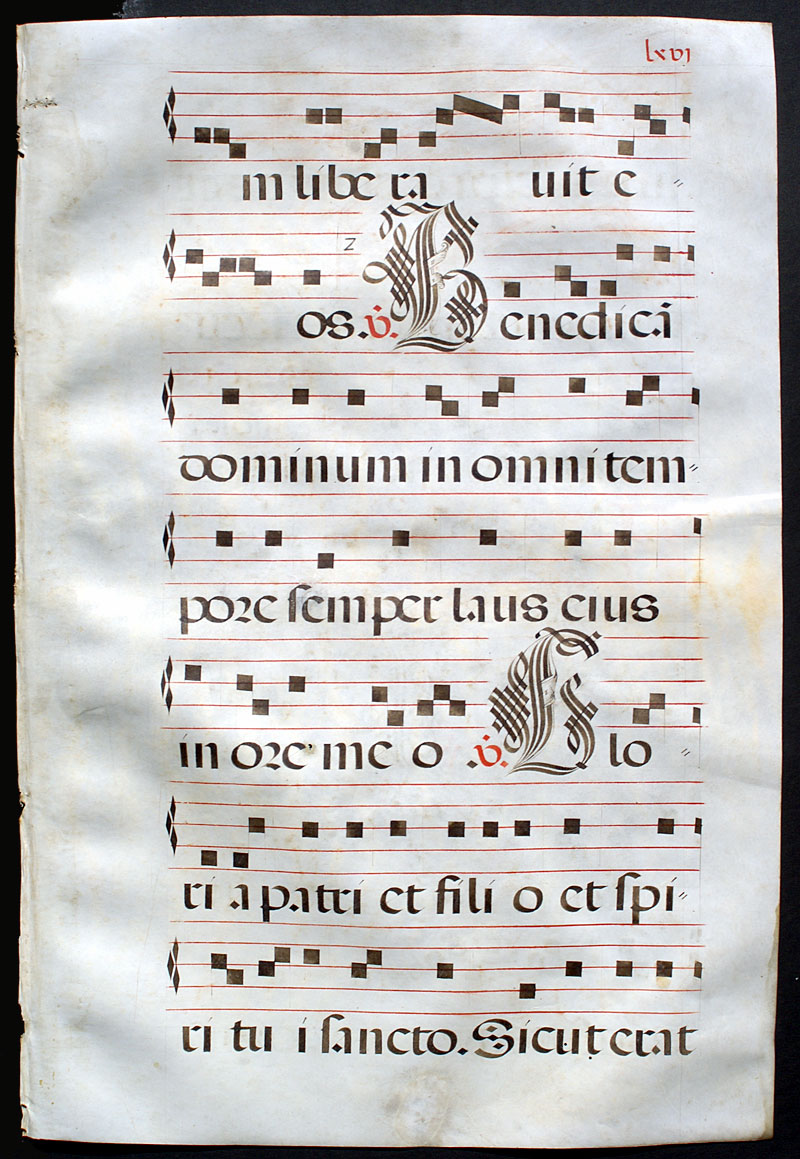 lxvj
m libe ra uit e "
z
os. v. Benedicā
dominum in omni tem "
pore semper laus eius
in ore meo . v. Glo "
ri a patri et fili o et spi "
ri tu i sancto. Sicut erat